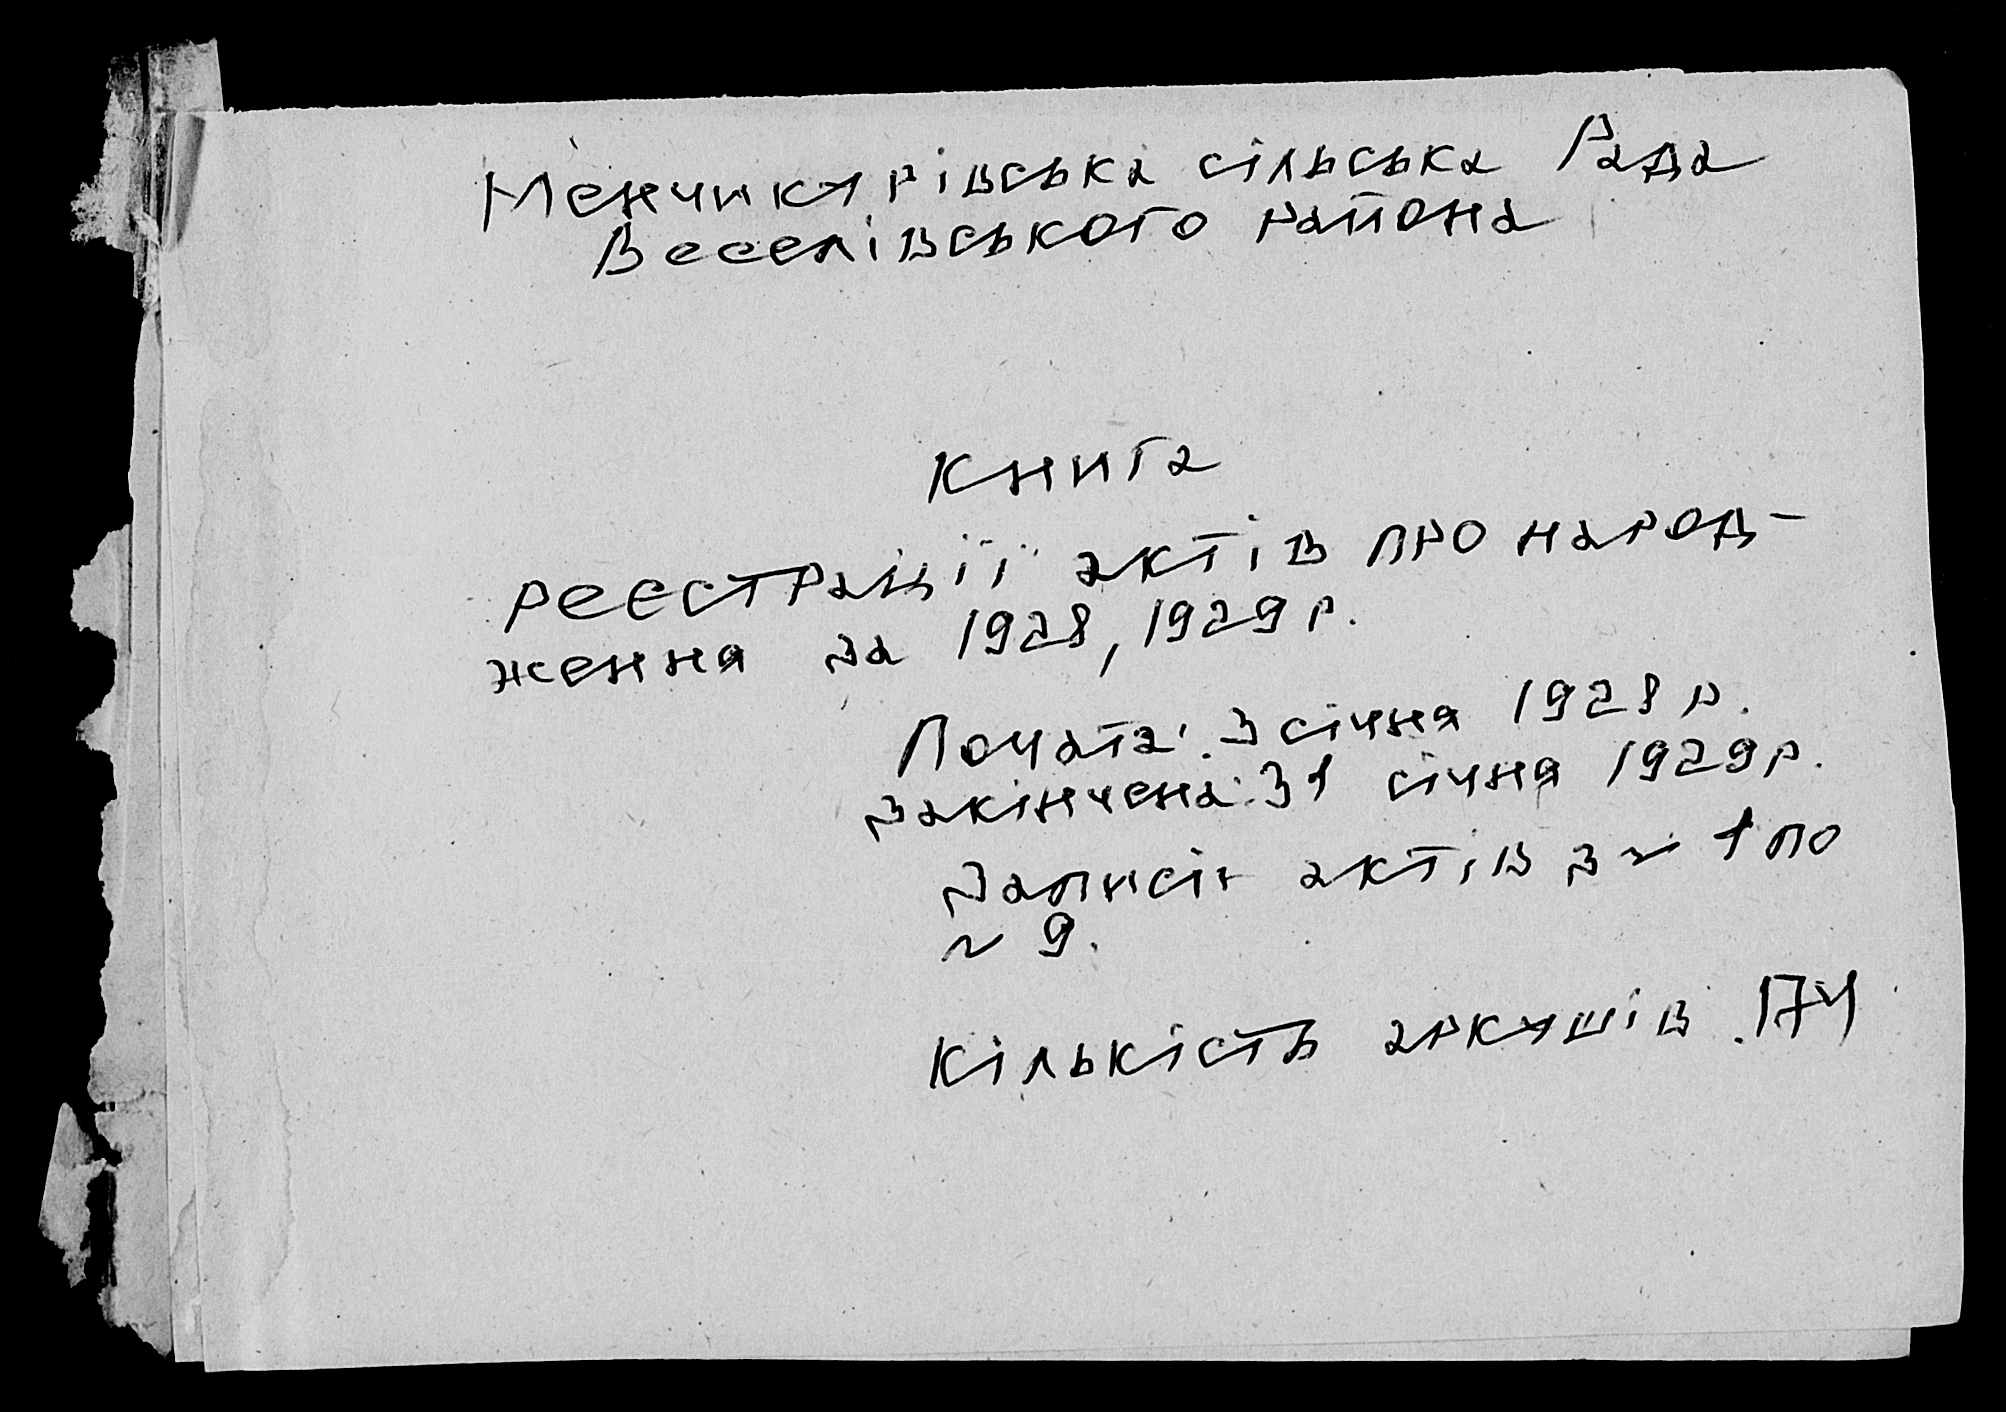 Менчикурівська сільська Рада
Веселівського района
Книга
реєстрації актів про народ-
ження за 1928, 1929 р.
Почата: 3 січня 1928 р.
Закінчена: 31 січня 1929 р.
Записів актів з № 1 по
№ 9.
Кількість аркушів 174